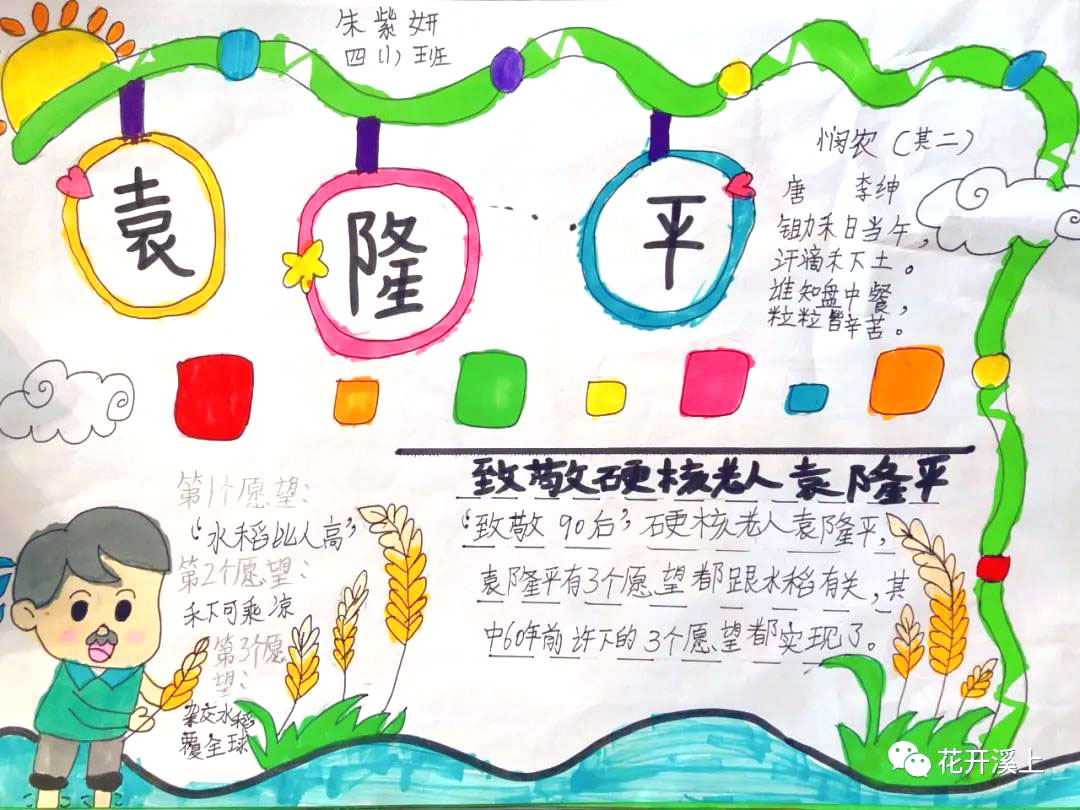 朱紫妍
四(1)班
袁
隆
平
悯农(其二)
唐 李绅
锄禾日当午,
汗滴禾下土。
谁知盘中餐,
粒粒皆辛苦。
致敬硬核老人袁隆平
“致敬90后”硬核老人袁隆平,
袁隆平有3个愿望都跟水稻有关,其
中60年前许下的3个愿望都实现了。
第1个愿望:
“水稻比人高”
第2个愿望:
禾下可乘凉
第3个愿
望:
杂交水稻
覆全球
花开溪上